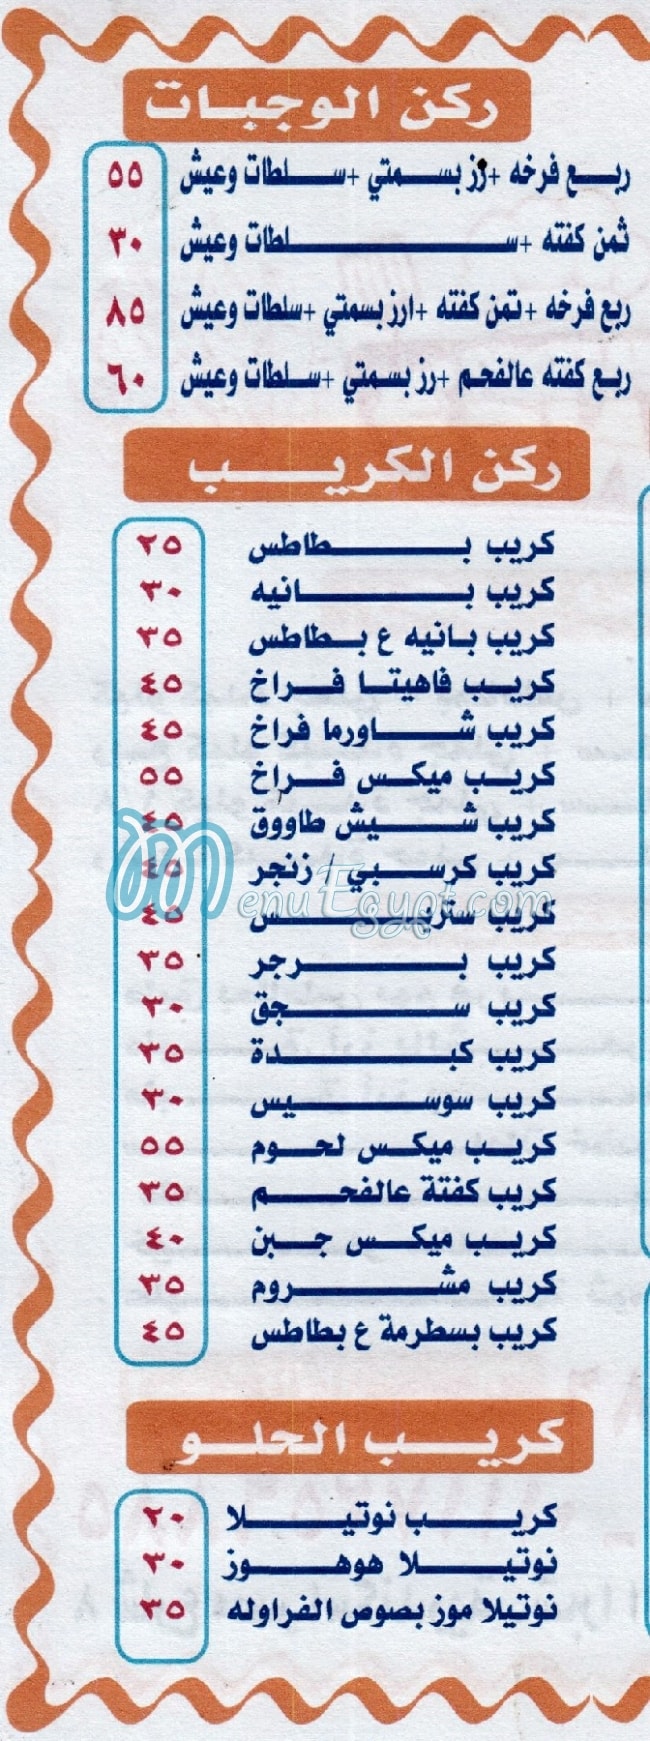 ركن الوجبات
ربع فرخه +رز بسمتي +سلطات وعيش ٥٥
ثمن كفته +سلطات وعيش ٣٠
ربع فرخه +تمن كفته +ارز بسمتي +سلطات وعيش ٨٥
ربع كفته عالفحم +رز بسمتي +سلطات وعيش ٦٠
ركن الكريب
كريب بطاطس ٢٥
كريب بانيه ٣٠
كريب بانيه ع بطاطس ٣٥
كريب فاهيتا فراخ ٤٥
كريب شاورما فراخ ٤٥
كريب ميكس فراخ ٥٥
كريب شيش طاووق ٤٥
كريب كرسبي / زنجر ٤٥
MenuEgypt.com
كريب ستربس ٤٥
كريب برجر ٣٥
كريب سجق ٣٠
كريب كبدة ٣٥
كريب سوسيس ٣٠
كريب ميكس لحوم ٥٥
كريب كفتة عالفحم ٣٥
كريب ميكس جبن ٤٠
كريب مشروم ٣٥
كريب بسطرمة ع بطاطس ٤٥
كريب الحلو
كريب نوتيلا ٢٠
نوتيلا هوهوز ٣٠
نوتيلا موز بصوص الفراوله ٣٥